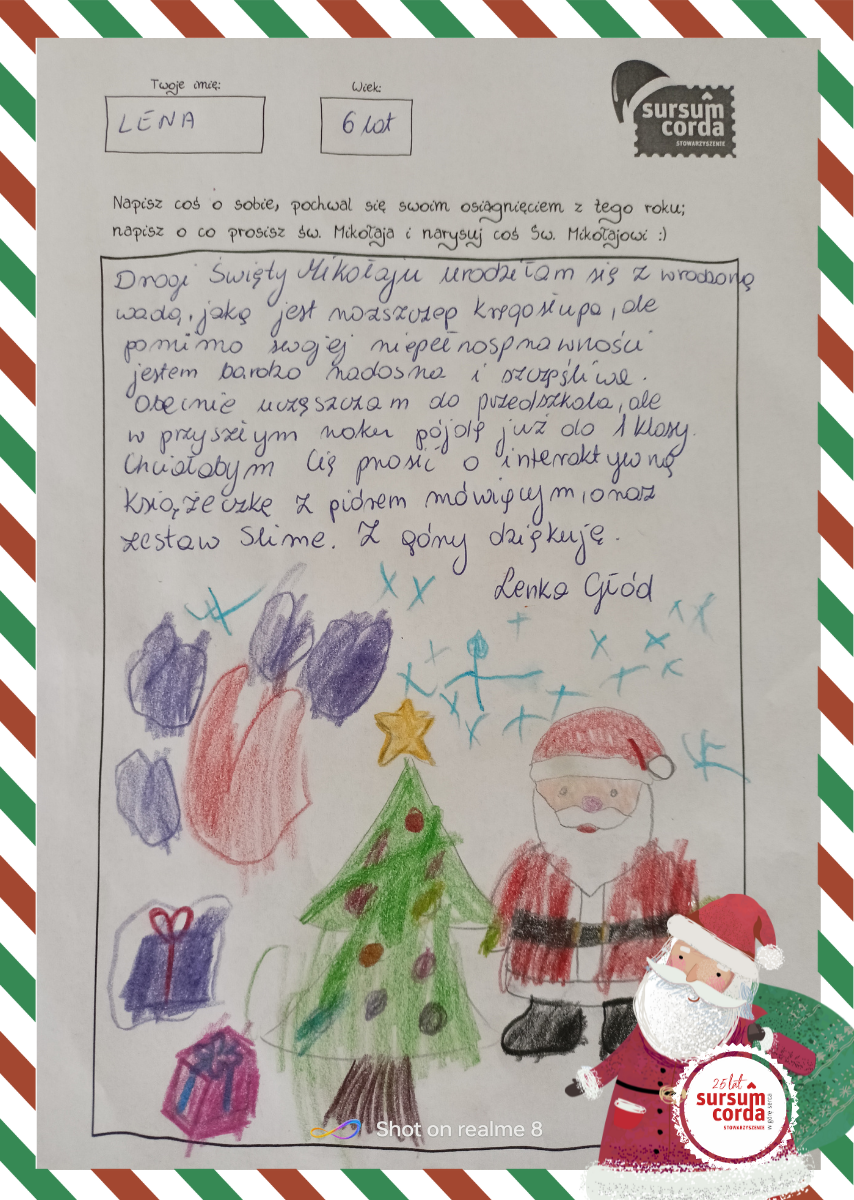 Twoje imię:
Wiek:
LENA
6 lat
sursum
corda
STOWARZYSZENIE
Napisz coś o sobie, pochwal się swoim osiągnięciem z tego roku;
napisz o co prosisz św. Mikołaja i narysuj coś Św. Mikołajowi :)
Drogi Święty Mikołaju urodziłam się z wrodzoną
wadą, jaką jest rozszczep kręgosłupa, ale
pomimo swojej niepełnosprawności
jestem bardzo radosna i szczęśliwa.
Obecnie uczęszczam do przedszkola, ale
w przyszłym roku pójdę już do 1 klasy.
Chciałabym Cię prosić o interaktywną
książeczkę z piórem mówiącym, oraz
zestaw Slime. Z góry dziękuję.
Lenka Głód
25 lat
sursum
corda
STOWARZYSZENIE
Shot on realme 8